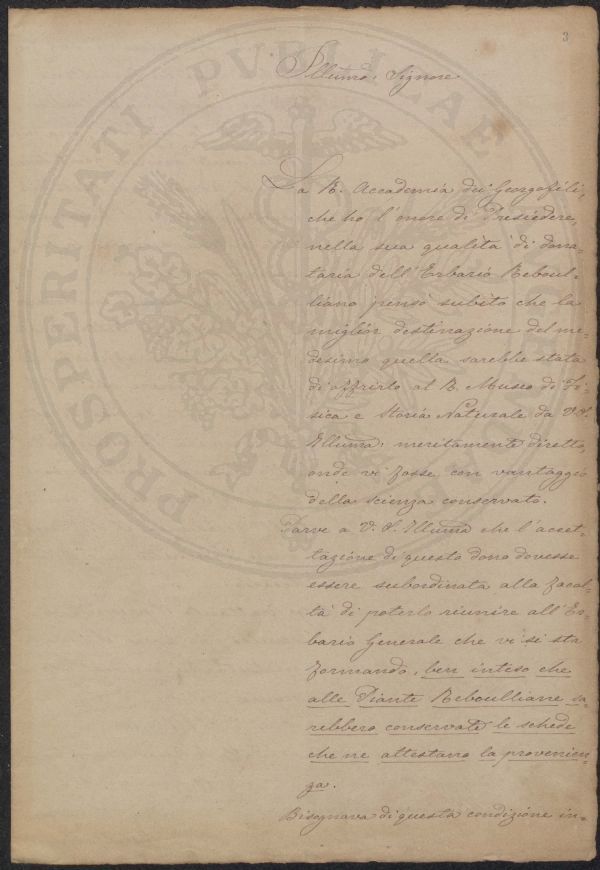 3
Illumo. Signore
La R. Accademia dei Georgofili,
che ho l'onore di Presiedere,
nella sua qualità di dona-
taria dell'Erbario Reboul-
liano pensò subito che la
miglior destinazione del me-
desimo quella sarebbe stata
di offrirlo al R. Museo di Fi-
sica e Storia Naturale da V.S.
Illuma. meritamente diretto,
onde vi fosse con vantaggio
della scienza conservato.
Parve a V.S. Illuma che l'accet-
tazione di questo dono dovesse
essere subordinata alla facol-
tà di poterlo riunire all'Er-
bario Generale che vi si sta
formando, ben inteso che
alle Piante Reboulliane sa-
rebbero conservate le schede
che ne attestano la provenien-
za.
Bisognava di questa condizione in-
PROSPERITATI PVBLICAE